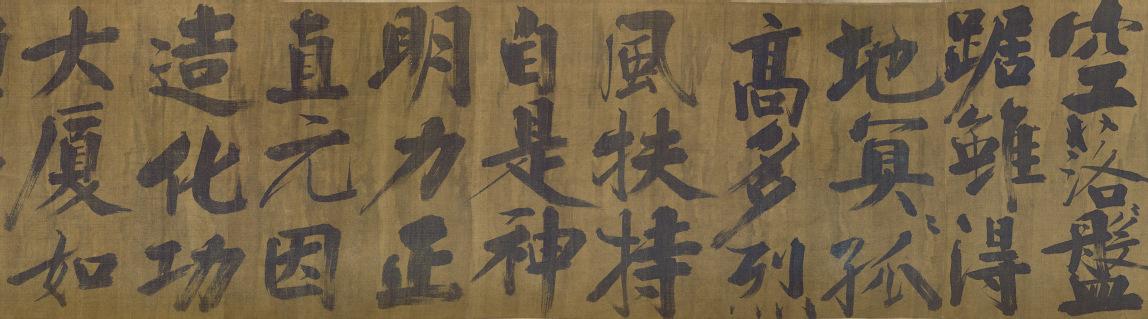 空落〻盤
踞雖得
地冥〻孤
高多烈
風扶持
自是神
明力正
直元因
造化功
大厦如